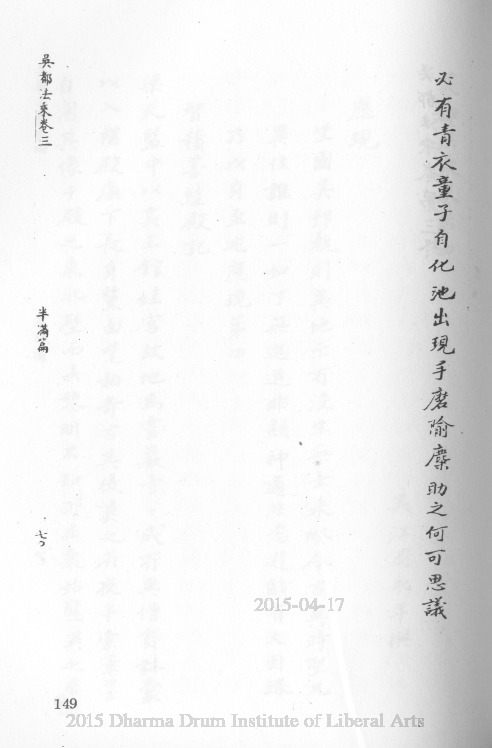 必有青衣童子自化池出現手磨隃麋助之何可思議
吳都法乘卷三
半滿篇
七
149
2015-04-17
2015 Dharma Drum Institute of Liberal Arts